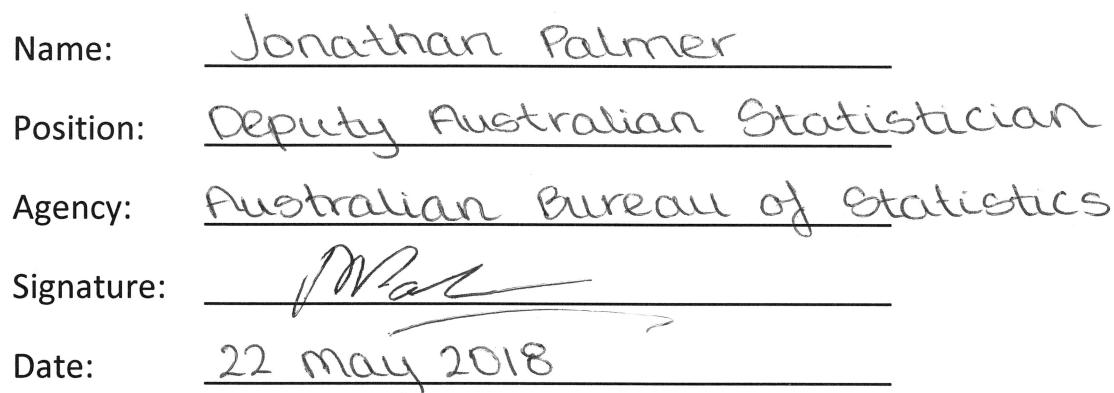 Name: Jonathan Palmer
Position: Deputy Australian Statistician
Agency: Australian Bureau of Statistics
Signature:
Date: 22 May 2018